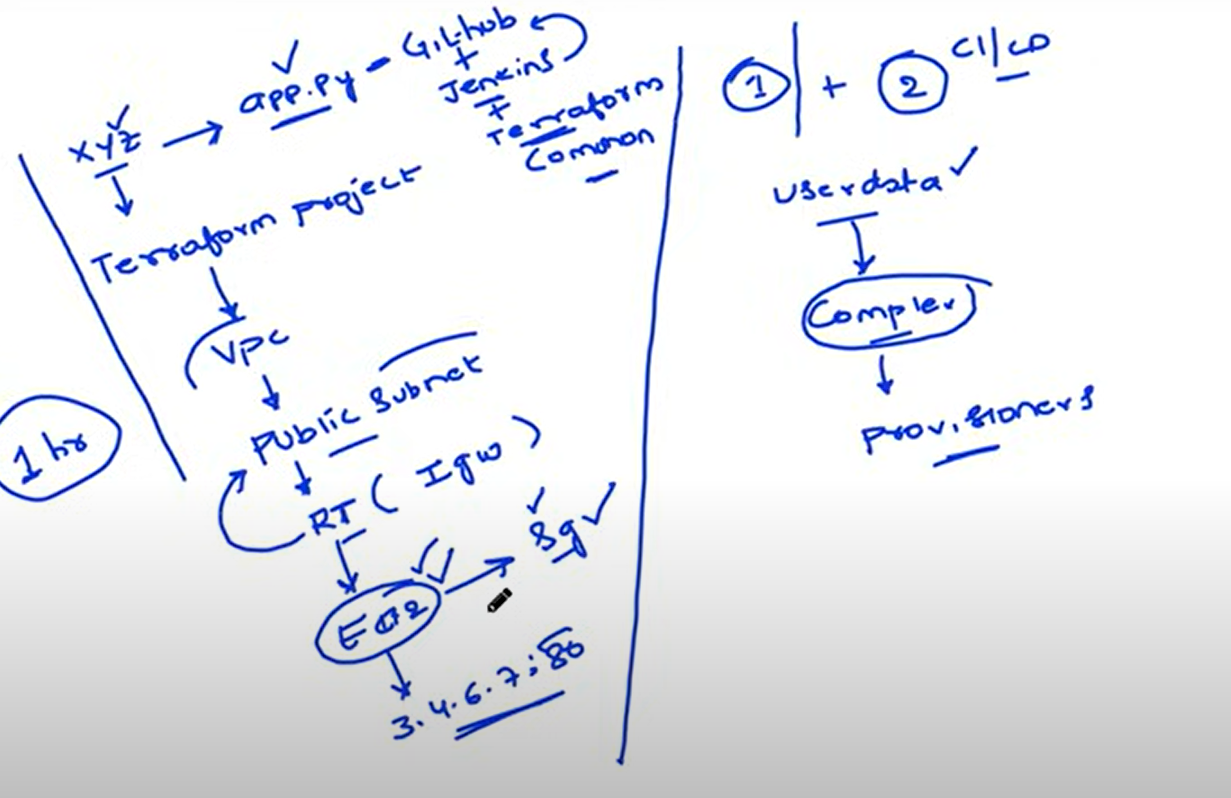 xyz → app.py - GitHub
+
Jenkins
+
Terraform
Common
Terraform project
Vpc
Public Subnet
RT ( Igw )
EC2 → Sg
3.4.6.7:80
1 hr
1 + 2 CI/CD
Userdata
Compler
Provisioners